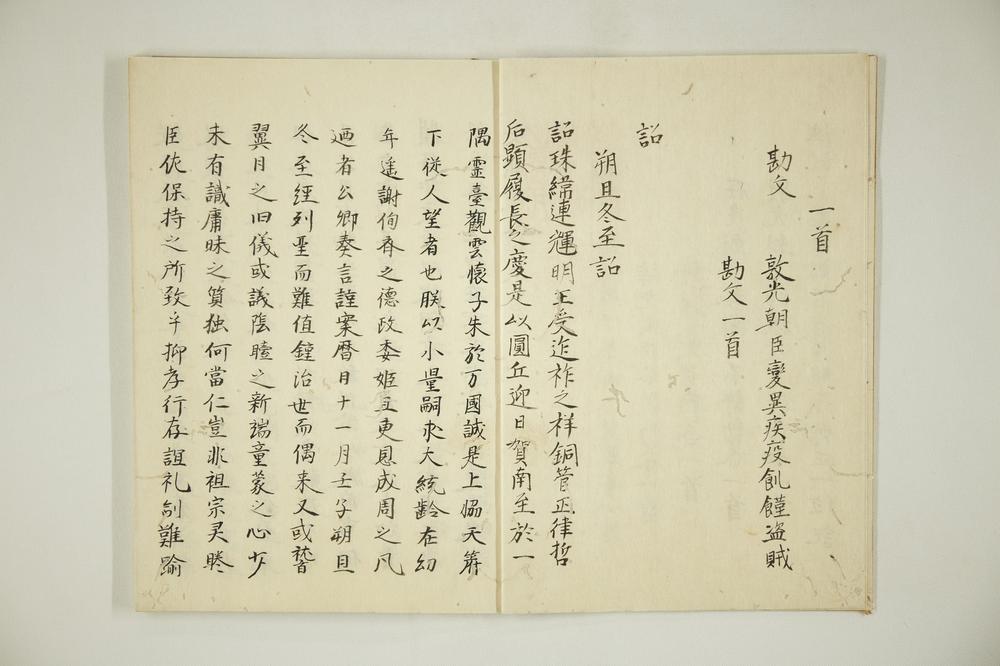 一首
勘文　敦光朝臣變異疾疫飢饉盗賊
勘文一首
詔
朔旦冬至詔
詔珠緯連輝明王受迄祚之祥銅管正律哲
后顕履長之慶是以圓丘迎日賀南至於一
隅靈臺觀雲懷子朱於万國誠是上協天
下従人望者也朕以小量嗣求大統齢在幼
年遥謝伺脊之德政委姫旦更恩成周之風
廼者公卿奏言謹案暦日十一月壬子朔旦
冬至経列聖而難值鐘治世而偶来又或
翼日之旧儀或議陰曀之新端童蒙之心少
未有識庸昧之質独何當仁豈非祖宗灵睠
臣佐保持之所致乎抑存行存詛礼制難踰